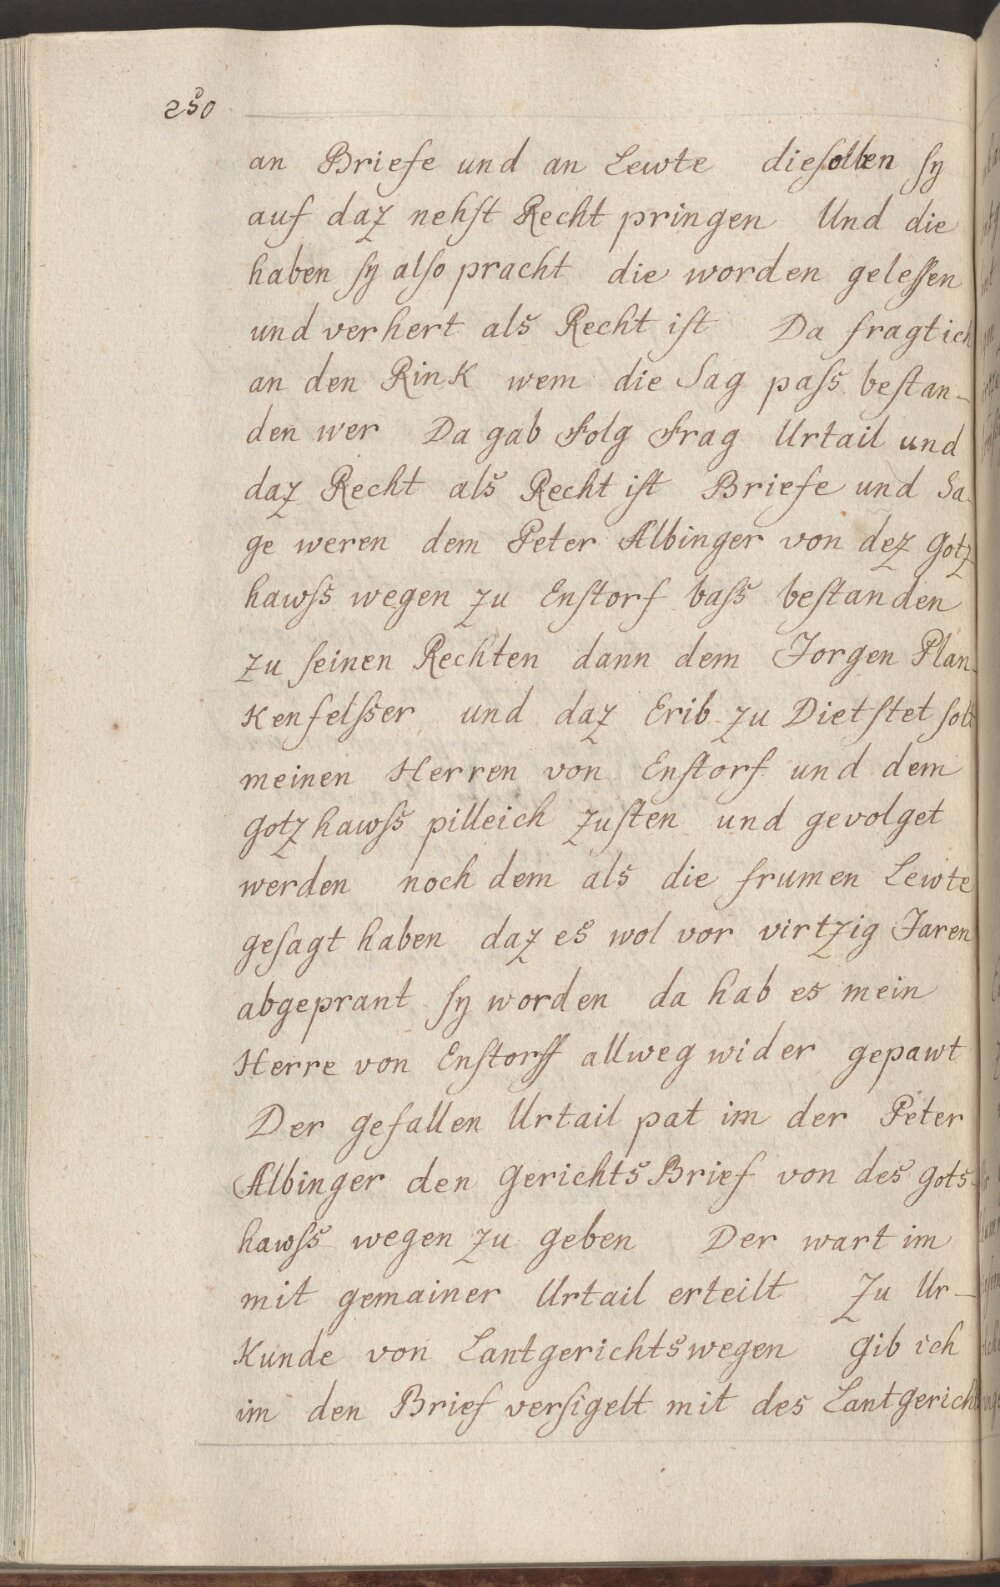 250
an Briefe und an Lewte die sollen sy
auf daz nehst Recht pringen Und die
haben sy also pracht die worden gelessen
und verhert als Recht ist Da fragt ich
an den Rink wem die Sag pass bestan-
den wer Da gab Folg Frag Urtail und
daz Recht als Recht ist Briefe und Sa-
ge weren dem Peter Albinger von dez Gotz
hawss wegen zu Enstorf bass bestanden
zu seinen Rechten dann dem Jorgen Plan-
kenfelsser und daz Erib zu Dietstet solt
meinen Herren von Enstorf und dem
Gotzhawss pilleich zusten und gevolget
werden noch dem als die frumen Lewte
gesagt haben daz es wol vor virtzig Jaren
abgeprant sy worden da hab es mein
Herre von Enstorff allweg wider gepawt
Der gefallen Urtail pat im der Peter
Albinger den GerichtsBrief von des Gots-
hawss wegen zu geben Der wart im
mit gemainer Urtail erteilt Zu Ur-
kunde von Lantgerichtswegen gib ich
im den Brief versigelt mit des Lantgerichts